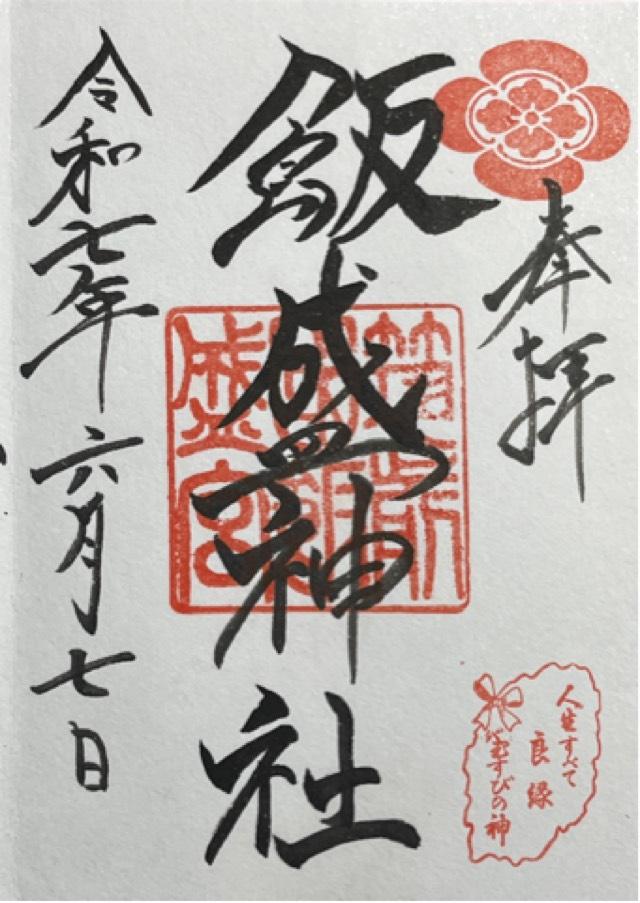 奉拝
飯盛神社
令和七年六月七日
人生すべて
良縁
むすびの神